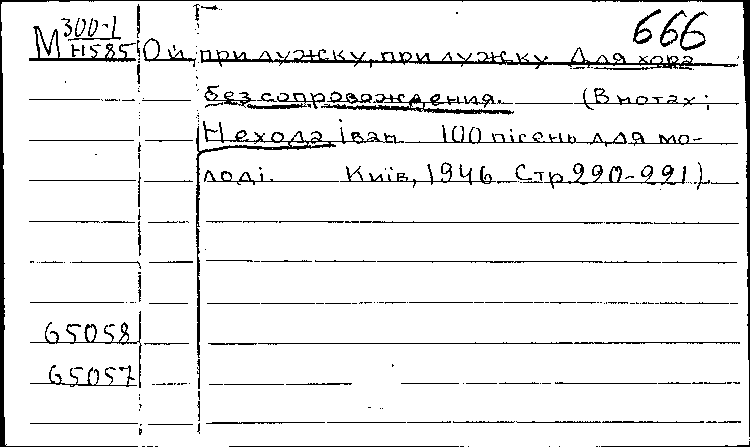 666
М 300-1
Н585 Ой, при лужку, при лужку. Для хора
без сопровождения. (В нотах:
Нехода Іван 100 пісень для мо-
лоді. Київ, 1946 Стр. 220-221)
65058
65057